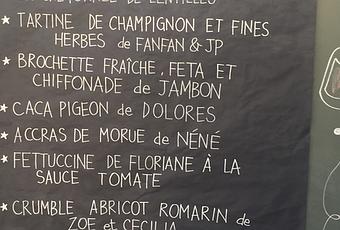 ★ TARTINE DE CHAMPIGNON ET FINES
HERBES de FANFAN & JP
★ BROCHETTE FRAÎCHE, FETA ET
CHIFFONADE de JAMBON
★ CACA PIGEON de DOLORES
★ ACCRAS DE MORUE de NÉNÉ
★ FETTUCCINE DE FLORIANE À LA
SAUCE TOMATE
★ CRUMBLE ABRICOT ROMARIN de
ZOE et CECILIA